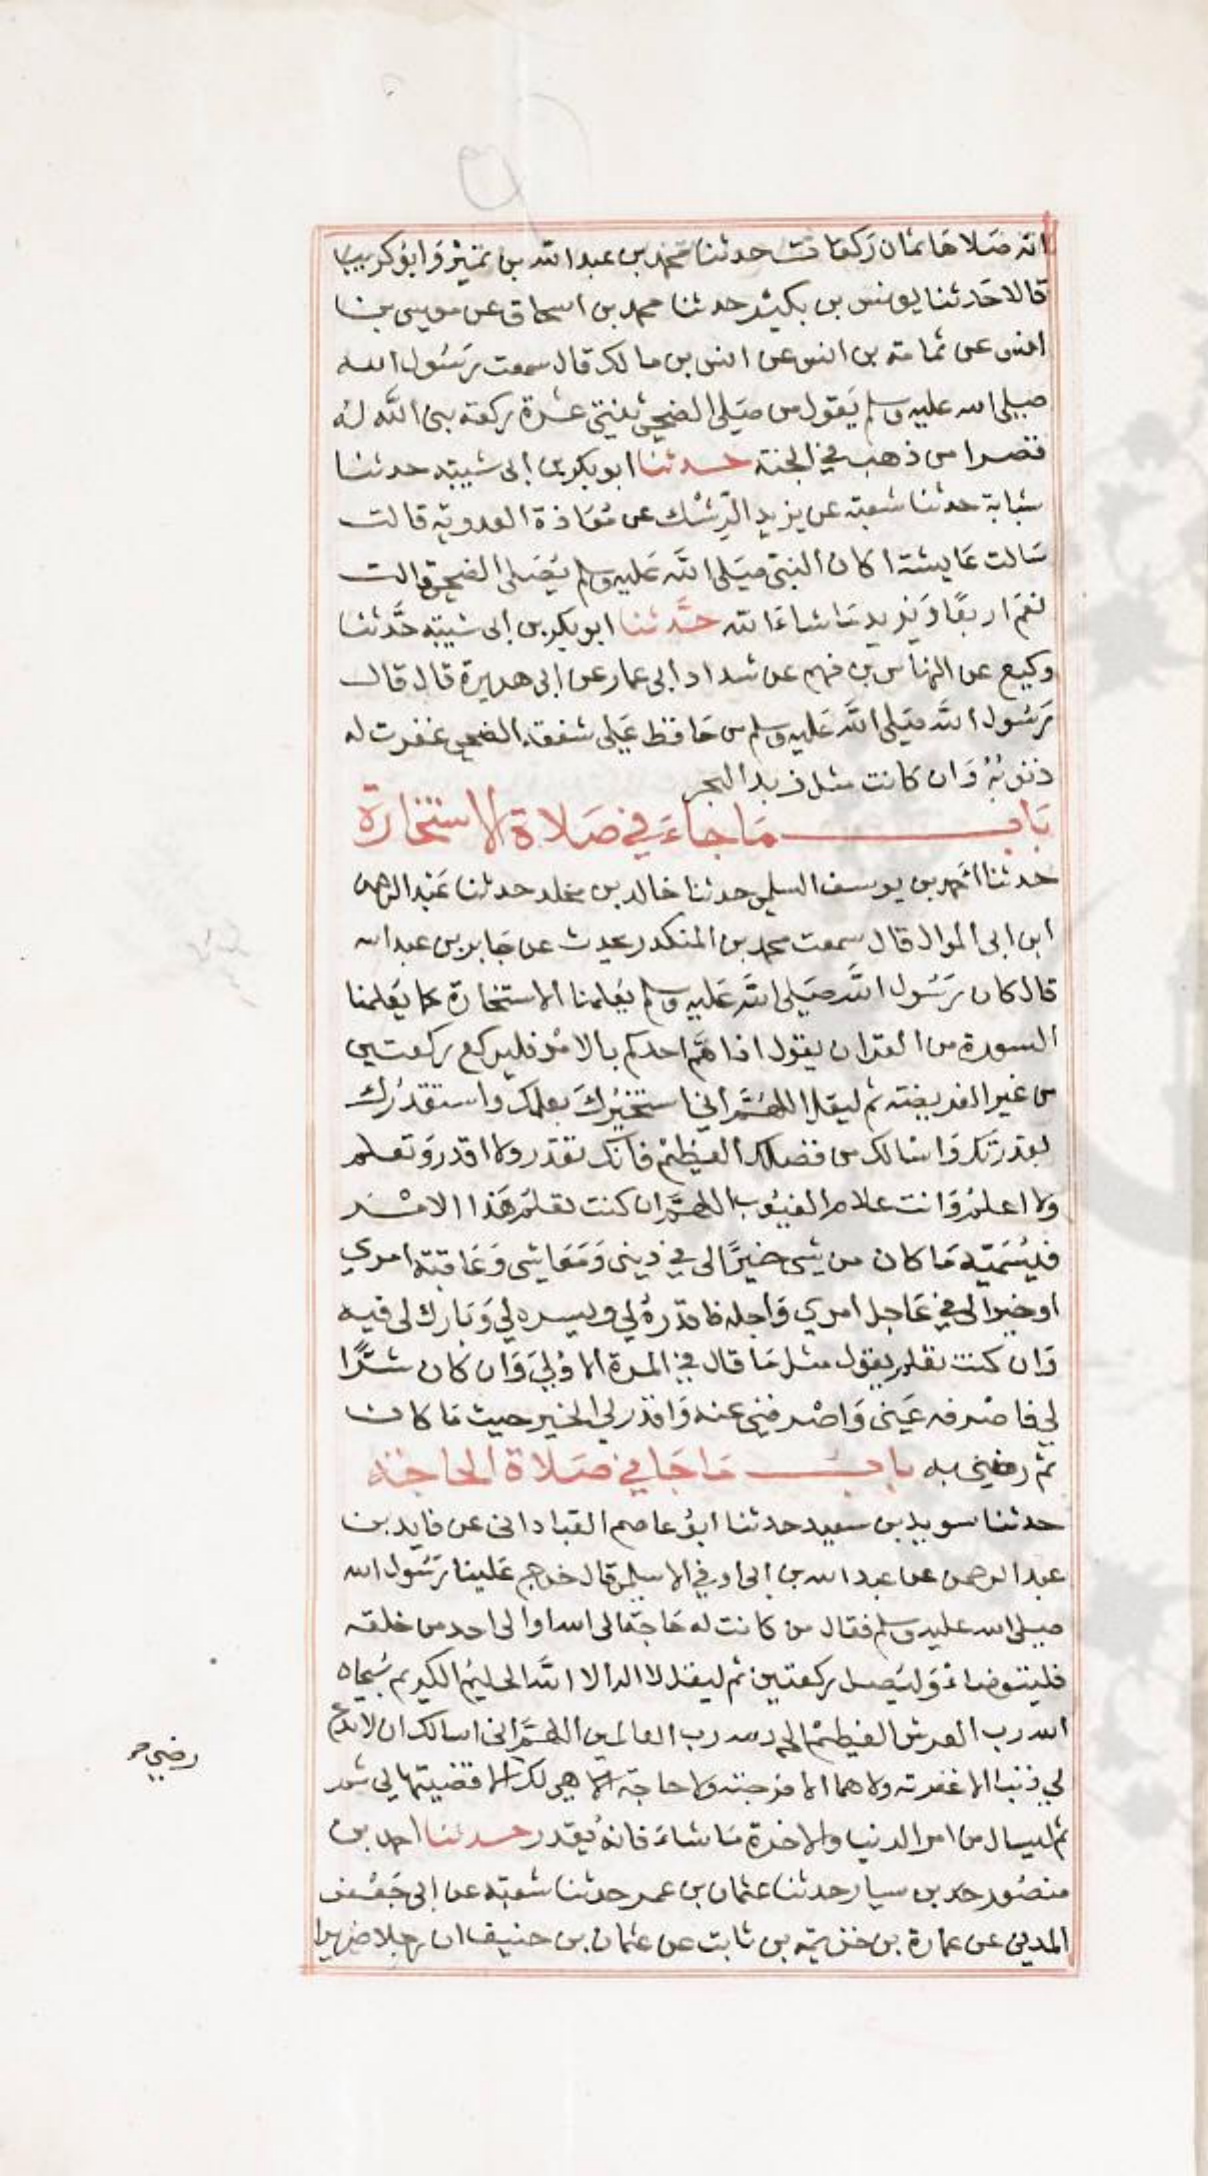 انه صلاها ثمان ركعات حدثنا محمد بن عبد الله بن نمير وابو كريب
قالا حدثنا يونس بن بكير حدثنا محمد بن اسحاق عن موسى بن
انس عن ثمامة بن انس عن انس بن مالك قال سمعت رسول الله
صلى الله عليه وسلم يقول من صلى الضحى ثنتي عشرة ركعة بنى الله له
قصرا من ذهب في الجنة حدثنا ابو بكر بن ابى شيبة حدثنا
شبابة حدثنا شعبة عن يزيد الرشك عن معاذة العدوية قالت
سالت عايشة اكان النبي صلى الله عليه وسلم يصلى الضحى قالت
نعم اربعا ويزيد ما شاء الله حدثنا ابو بكر بن ابى شيبة حدثنا
وكيع عن النهاس بن فهم عن شداد ابى عمار عن ابى هريرة قال قال
رسول الله صلى الله عليه وسلم من حافظ على شفعة الضحى غفرت له
ذنوبه وان كانت مثل زبد البحر
باب ما جاء في صلاة الاستخارة
حدثنا احمد بن يوسف السلمي حدثنا خالد بن مخلد حدثنا عبد الرحمن
ابن ابى الموال قال سمعت محمد بن المنكدر يحدث عن جابر بن عبد الله
قال كان رسول الله صلى الله عليه وسلم يعلمنا الاستخارة كما يعلمنا
السورة من القران يقول اذا هم احدكم بالامر فليركع ركعتين
من غير الفريضة ثم ليقل اللهم اني استخيرك بعلمك واستقدرك
بقدرتك واسالك من فضلك العظيم فانك تقدر ولا اقدر وتعلم
ولا اعلم وانت علام الغيوب اللهم ان كنت تعلم هذا الامر
فيسميه ما كان من شى خيرا لى في ديني ومعاشى وعاقبة امري
او خيرا لى في عاجل امري واجله فاقدره لي ويسره لي وبارك لى فيه
وان كنت تعلم يقول مثل ما قال في المرة الاولى وان كان شرا
لي فاصرفه عني واصرفني عنه واقدر لي الخير حيث ما كان
ثم رضني به باب ما جا في صلاة الحاجة
حدثنا سويد بن سعيد حدثنا ابو عاصم العباداني عن فايد بن
عبد الرحمن عن عبد الله بن ابى اوفي الاسلمي قال خرج علينا رسول الله
صلى الله عليه وسلم فقال من كانت له حاجة الى الله او الى احد من خلقه
فليتوضاء وليصل ركعتين ثم ليقل لا اله الا الله الحليم الكريم سبحان
الله رب العرش العظيم الحمد لله رب العالمين اللهم انى اسالك ان لا تدع
لي ذنبا الا غفرته ولا هما الا فرجته ولا حاجة هي لك الا قضيتها لي
رضي
ثم ليسال من امر الدنيا والاخرة ما شاء فانه يقدر حدثنا احمد بن
منصور بن سيار حدثنا عثمان بن عمر حدثنا شعبة عن ابى جعفر
المدني عن عمارة بن خزيمة بن ثابت عن عثمان بن حنيف ان رجلا ضريرا